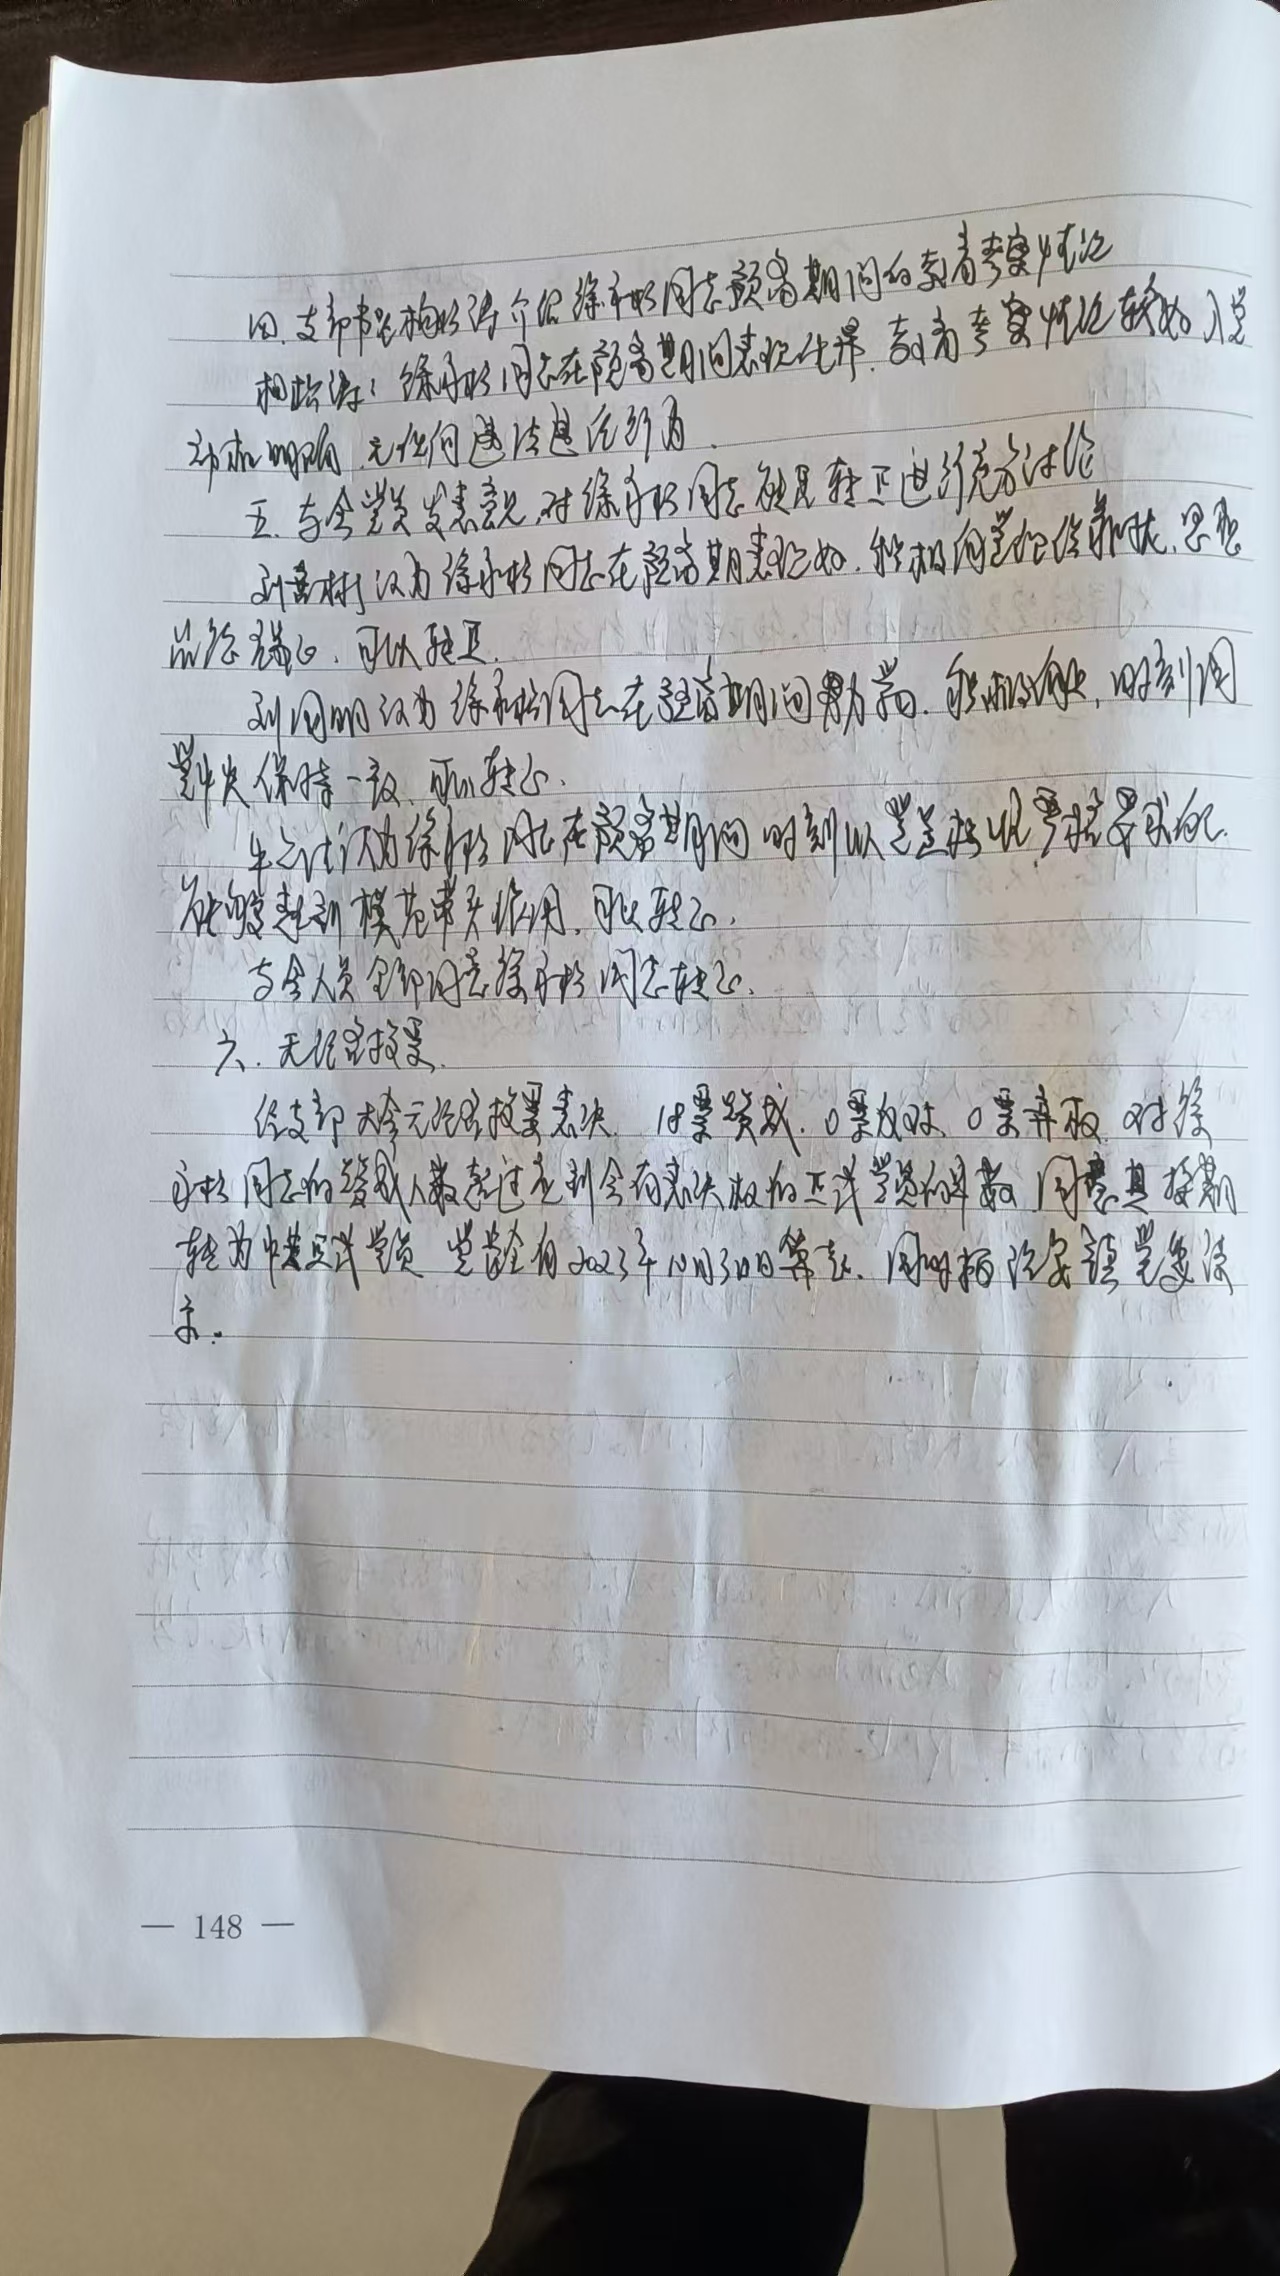 四、支部书记相松涛介绍徐永彬同志预备期间的教育考察情况
相松涛：徐永彬同志在预备期间表现优异，教育考察情况较好，入党
动机明确，无任何违法违纪行为。
五、与会党员发表意见，对徐永彬同志能否转正进行充分讨论
刘吉树认为徐永彬同志在预备期表现好，积极向党组织靠拢，思想
品德端正，可以转正。
刘同明认为徐永彬同志在预备期间努力学习，积极，时刻同
党中央保持一致，可以转正。
认为徐永彬同志在预备期间时刻以党员标准严格要求自己，
能够起到模范带头作用，可以转正。
与会人员全部同意徐永彬同志转正。
六、无记名投票
经支部大会无记名投票表决，18票赞成，0票反对，0票弃权，对徐
永彬同志的赞成人数超过应到会有表决权的正式党员的半数，同意其按期
转为中共正式党员，党龄自2023年10月30日算起，同时报镇党委
。
— 148 —